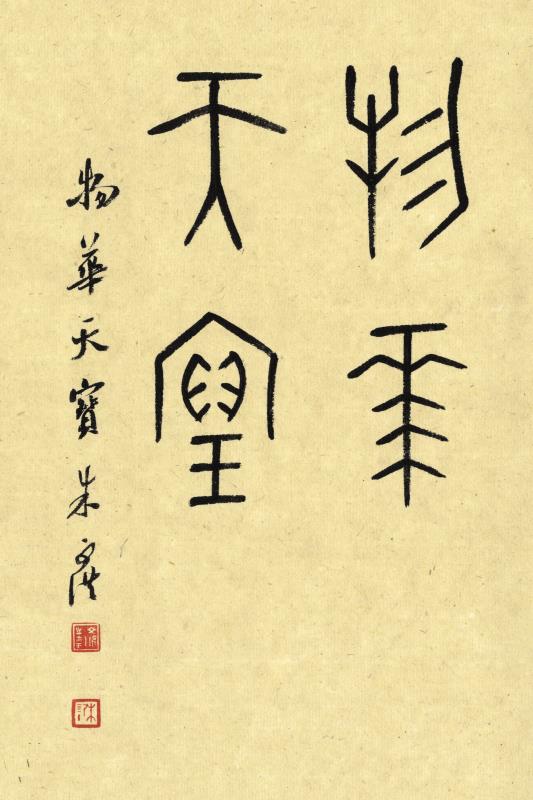 物華
天寶
物華天寶 朱